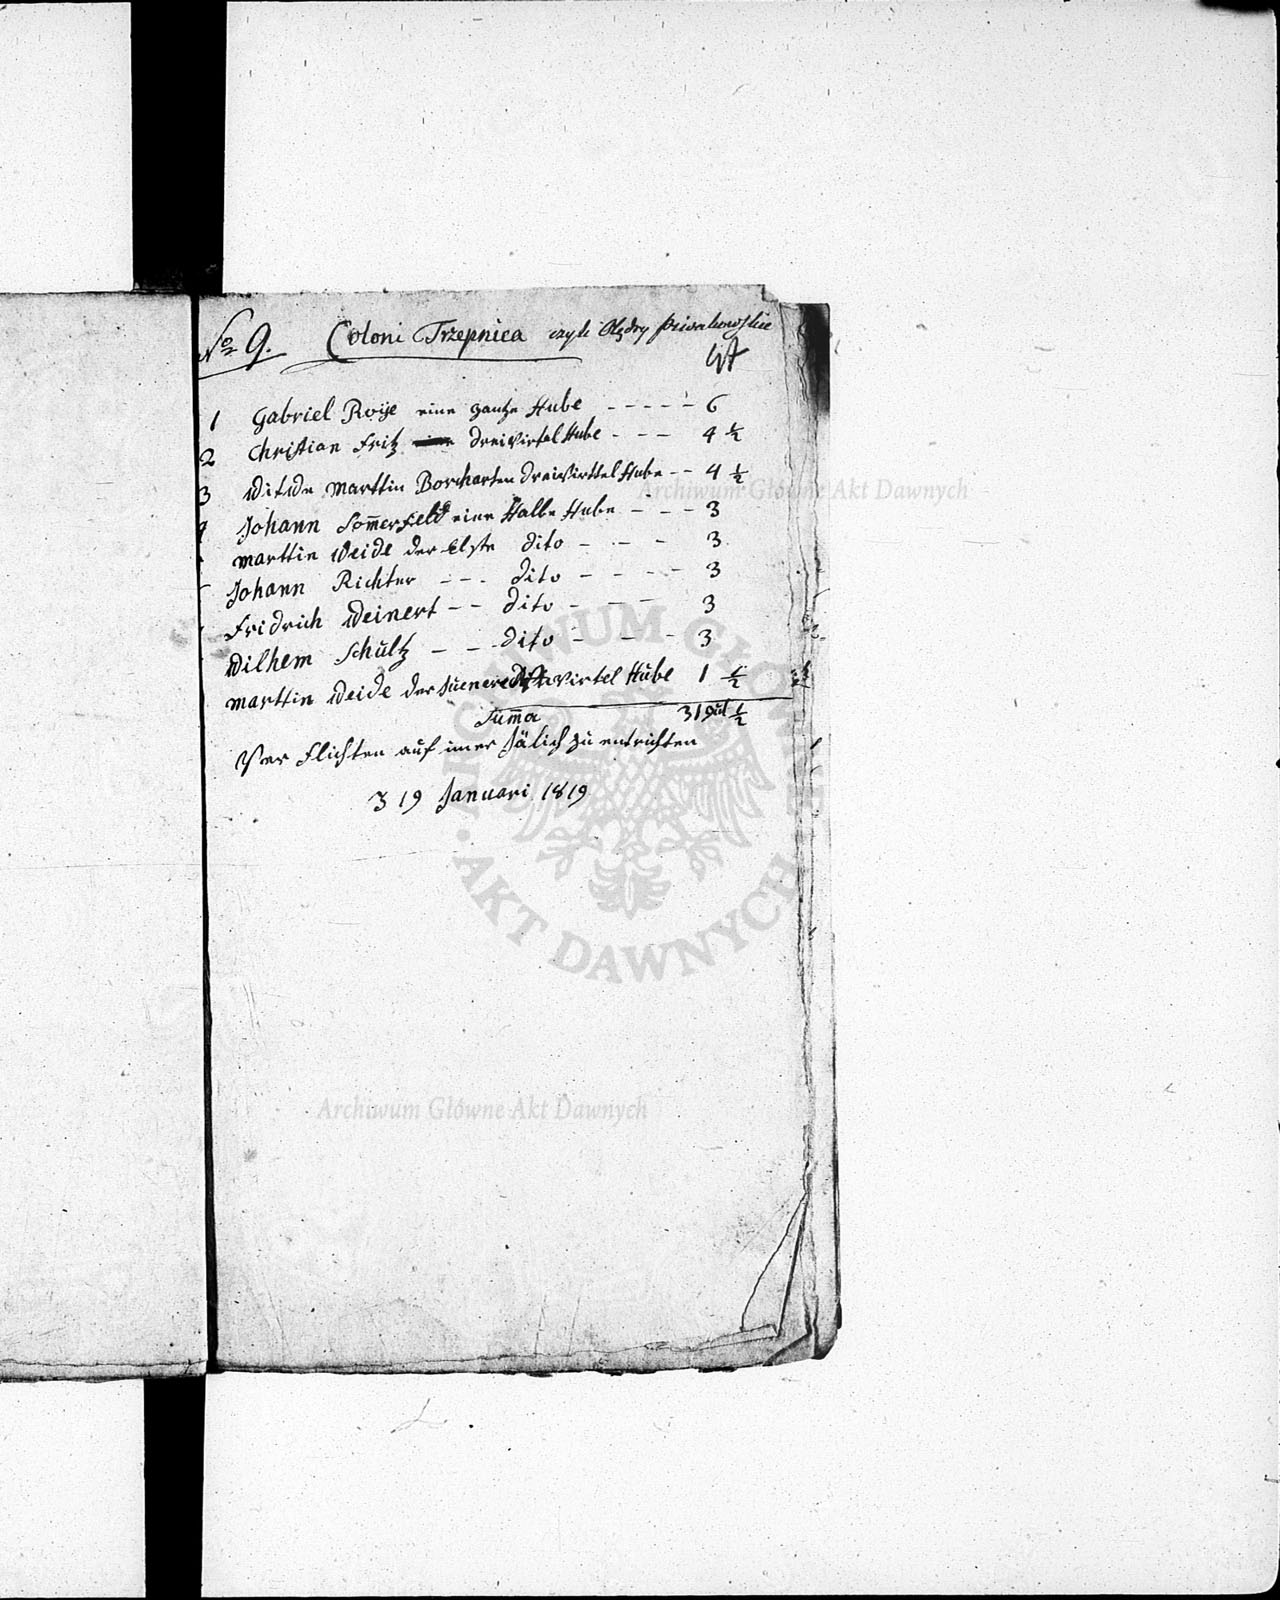 No 9. Coloni Trzepnica czyli Olędry
1 Gabriel Roÿe eine gantze Hube - - - - - 6
2 Christian Fritz dreiVirtel Hube - - - 4 ½
3 Witwe Marttin Borcharten dreivirttel Hube - - 4 ½
4 Johann Som̄erfeld eine Halbe Hube - - - 3
Marttin Weide der Elste dito - - - 3
Johann Richter - - - dito - - - - 3
Fridrich Weinert - - dito - - - 3
Wilhem Schultz - - - dito - - - 3
Marttin Weide der Virtel Hube 1 ½
Sum̄a 31 gul ½
Ver Flichten auf imer Jälich zu entrichten
3 19 Januari 1819
Archiwum Główne Akt Dawnych
ARCHIWUM GŁÓWNE · AKT DAWNYCH ·
Archiwum Główne Akt Dawnych